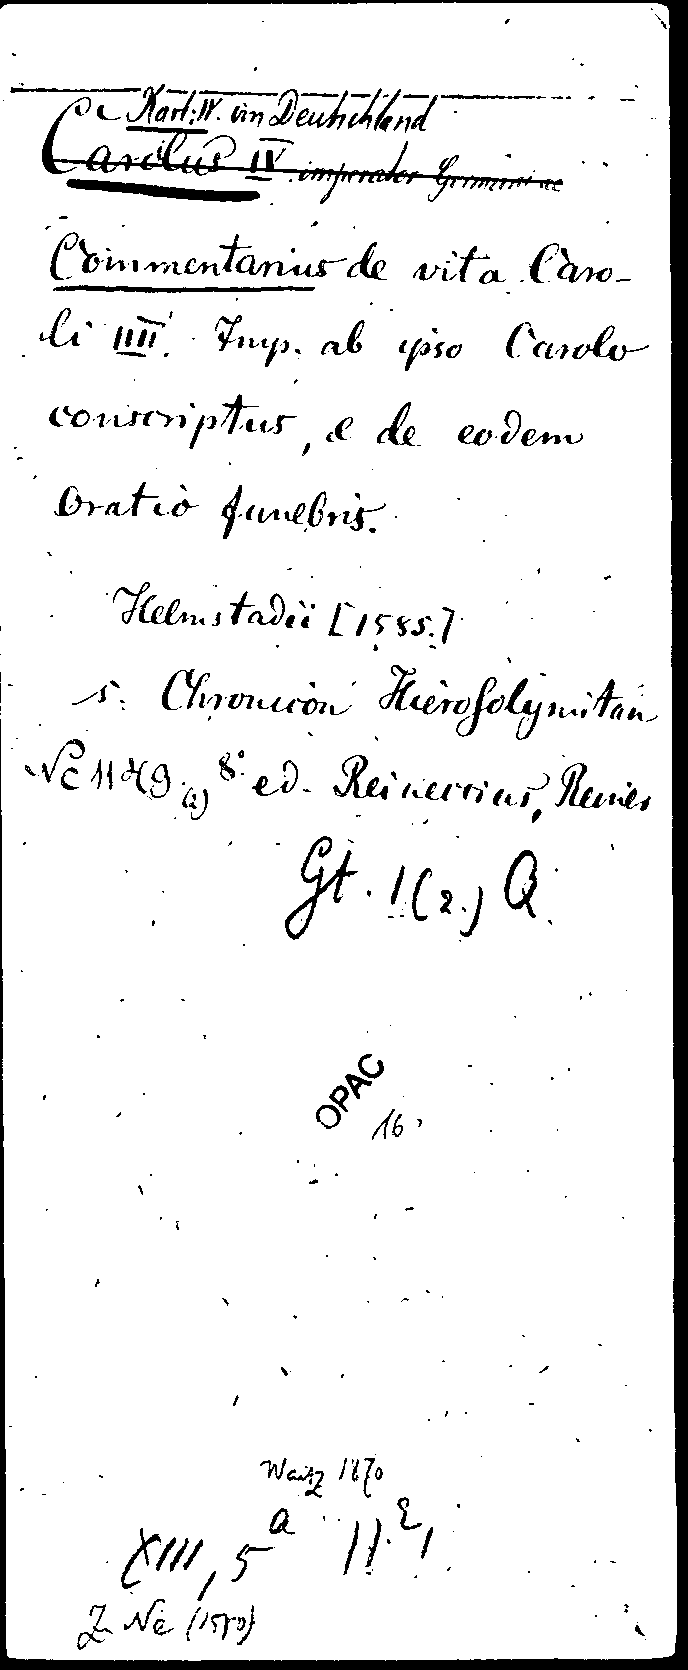 Karl: IV. von Deutschland
Carolus IV imperator Germaniae
Commentarius de vita Caro-
li IIII. Imp. ab ipso Carolo
conscriptus, & de eodem
Oratio funebris.
Helmstadii [1585.]
s. Chronicon Hierosolymitan
ed. Reineccius, Reiner
Gt. 1 (2.) Q.
OPAC
16
Waitz 1870
XIII, 5 a II. 2,
Z. Ne (1580)